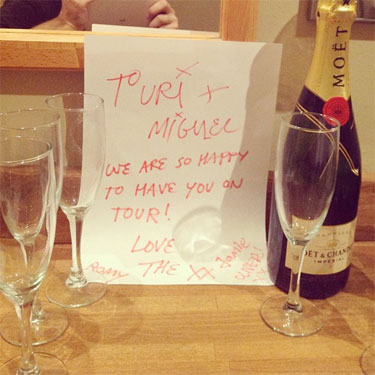 TO URI +
MIGUEL
WE ARE SO HAPPY
TO HAVE YOU ON
TOUR!
LOVE
THE XX
Romy
Jamie
OLIVER!
MOËT
MOËT & CHANDON
IMPERIAL